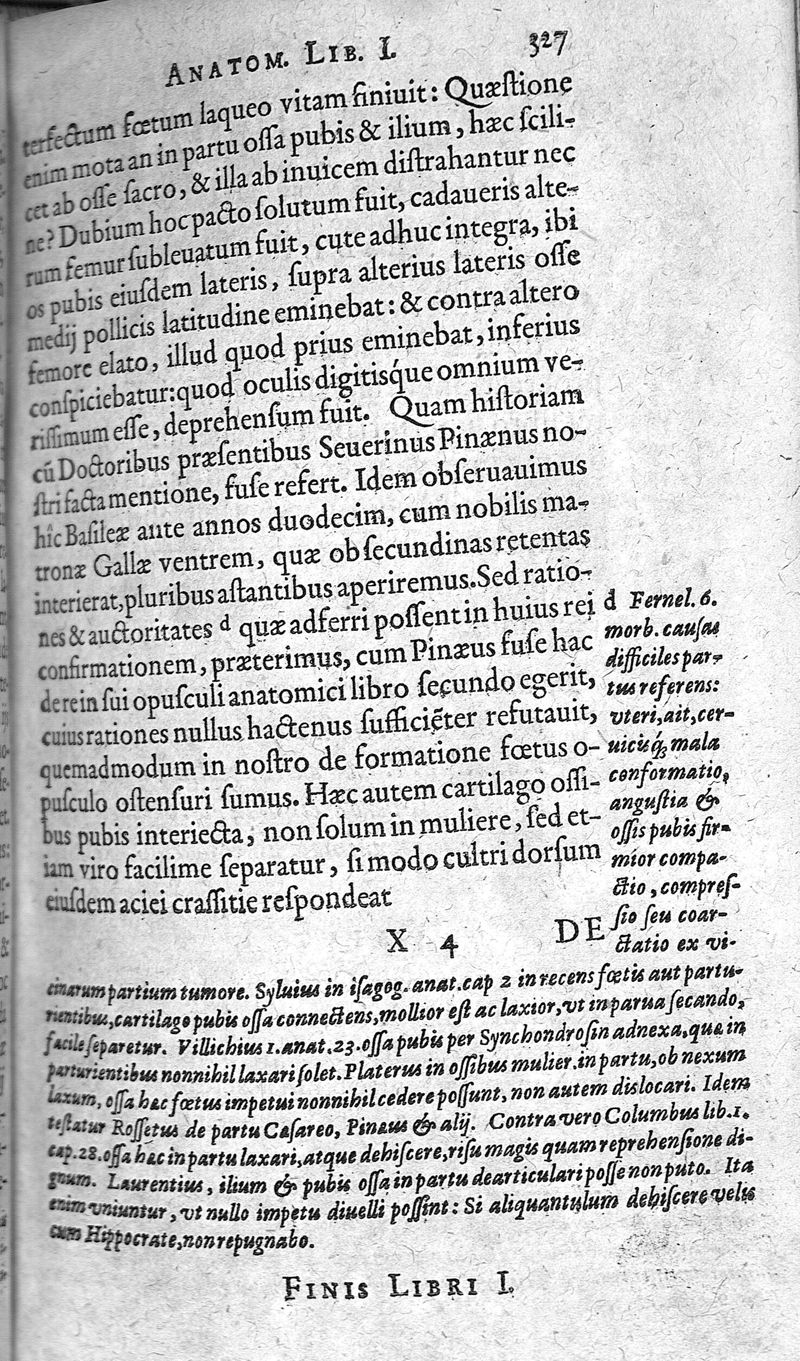 ANATOM. LIB. I. 327
terfectum fœtum laqueo vitam finiuit: Quæſtione
enim mota an in partu oſſa pubis & ilium, hæc ſcili-
cet ab oſſe ſacro, & illa ab inuicem diſtrahantur nec
ne? Dubium hoc pacto ſolutum fuit, cadaueris alte-
rum femur ſubleuatum fuit, cute adhuc integra, ibi
os pubis eiuſdem lateris, ſupra alterius lateris oſſe
medij pollicis latitudine eminebat: & contra altero
femore elato, illud quod prius eminebat, inferius
conſpiciebatur: quod oculis digitisq́ue omnium ve-
riſſimum eſſe, deprehenſum fuit. Quam hiſtoriam
cū Doctoribus præſentibus Seuerinus Pinænus no-
ſtri facta mentione, fuſe refert. Idem obſeruauimus
hîc Baſileæ ante annos duodecim, cum nobilis ma-
tronæ Gallæ ventrem, quæ ob ſecundinas retentas
interierat, pluribus aſtantibus aperiremus. Sed ratio-
nes & auctoritates d quæ adferri poſſent in huius rei
confirmationem, præterimus, cum Pinæus fuſe hac
de re in ſui opuſculi anatomici libro ſecundo egerit,
cuius rationes nullus hactenus ſufficiēter refutauit,
quemadmodum in noſtro de formatione fœtus o-
puſculo oſtenſuri ſumus. Hæc autem cartilago oſſi-
bus pubis interiecta, non ſolum in muliere, ſed et-
iam viro facilime ſeparatur, ſi modo cultri dorſum
eiuſdem aciei craſſitie reſpondeat
X 4 DE
d Fernel. 6.
morb. cauſas
difficiles par-
tus referens:
vteri, ait, cer-
uicisq́; mala
conformatio,
anguſtia &
oſſis pubis fir-
mior compa-
ctio, compreſ-
ſio ſeu coar-
ctatio ex vi-
cinarum partium tumore. Syluius in iſagog. anat. cap 2 in recens fœtis aut partu-
rientibus, cartilago pubis oſſa connectens, mollior eſt ac laxior, vt in parua ſecando,
facile ſeparetur. Villichius 1. anat. 23. oſſa pubis per Synchondroſin adnexa, quæ in
parturientibus nonnihil laxari ſolet. Platerus in oſſibus mulier. in partu, ob nexum
laxum, oſſa hæc fœtus impetui nonnihil cedere poſſunt, non autem dislocari. Idem
teſtatur Roſſetus de partu Cæſareo, Pinæus & alij. Contra vero Columbus lib. 1.
cap. 28. oſſa hæc in partu laxari, atque dehiſcere, riſu magis quam reprehenſione di-
gnum. Laurentius, ilium & pubis oſſa in partu dearticulari poſſe non puto. Ita
enim vniuntur, vt nullo impetu diuelli poſſint: Si aliquantulum dehiſcere velis
cum Hippocrate, non repugnabo.
FINIS LIBRI I.